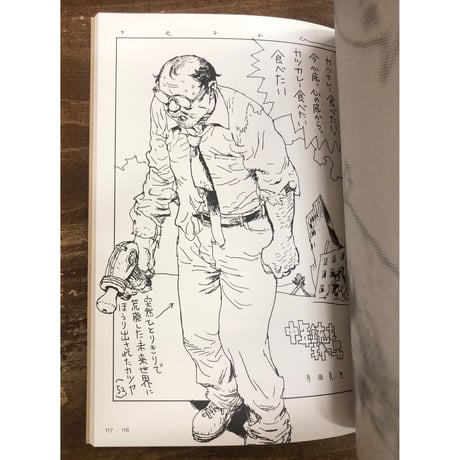 カツカレー食べたい。
今心底、心の底から、
カツカレー食べたい
食べたい
突然ひとりキリで
荒廃した未来世界に
ほうり出されたカツヤ
(53)
寺田克也
117 116